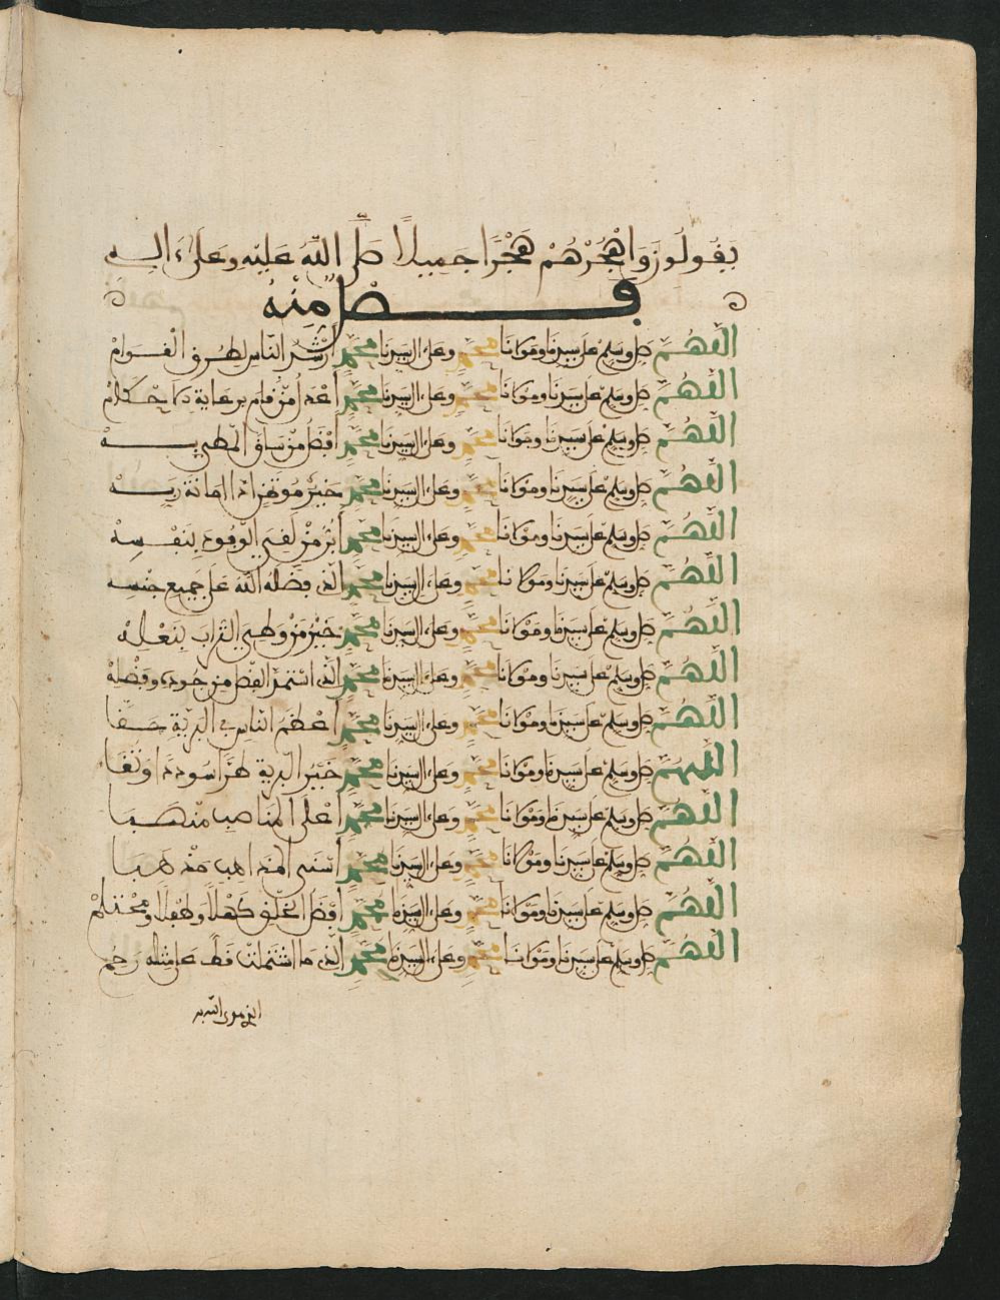 يقولون واهجرهم هجرا جميلا صلى الله عليه وعلى ءاله
فصل منه
اللهم صل وسلم على سيدنا ومولانا محمد وعلى ال سيدنا محمد أرشد الناس لطرق القوام
اللهم صل وسلم على سيدنا ومولانا محمد وعلى ال سيدنا محمد أعدل من قام برعاية الاحكام
اللهم صل وسلم على سيدنا ومولانا محمد وعلى ال سيدنا محمد أفضل من ساق المطيه
اللهم صل وسلم على سيدنا ومولانا محمد وعلى ال سيدنا محمد خير موتمن ادا امانة ربه
اللهم صل وسلم على سيدنا ومولانا محمد وعلى ال سيدنا محمد أبر من لقي الوفود بنفسه
اللهم صل وسلم على سيدنا ومولانا محمد وعلى ال سيدنا محمد الذى فضله الله على جميع جنسه
اللهم صل وسلم على سيدنا ومولانا محمد وعلى ال سيدنا محمد خير من وطىء التراب بنعله
اللهم صل وسلم على سيدنا ومولانا محمد وعلى ال سيدنا محمد الذى استمد الفضل من جوده وفضله
اللهم صل وسلم على سيدنا ومولانا محمد وعلى ال سيدنا محمد أعظم الناس في البرية حقا
اللهم صل وسلم على سيدنا ومولانا محمد وعلى ال سيدنا محمد خير البرية طرا سوددا وتقا
اللهم صل وسلم على سيدنا ومولانا محمد وعلى ال سيدنا محمد أعلى المناصب منصبا
اللهم صل وسلم على سيدنا ومولانا محمد وعلى ال سيدنا محمد أسنى المذاهب مذهبا
اللهم صل وسلم على سيدنا ومولانا محمد وعلى ال سيدنا محمد أفضل الخلق كهلا وطفلا ومحتلم
اللهم صل وسلم على سيدنا ومولانا محمد وعلى ال سيدنا محمد الذى ما اشتملت قط على مثله رحم